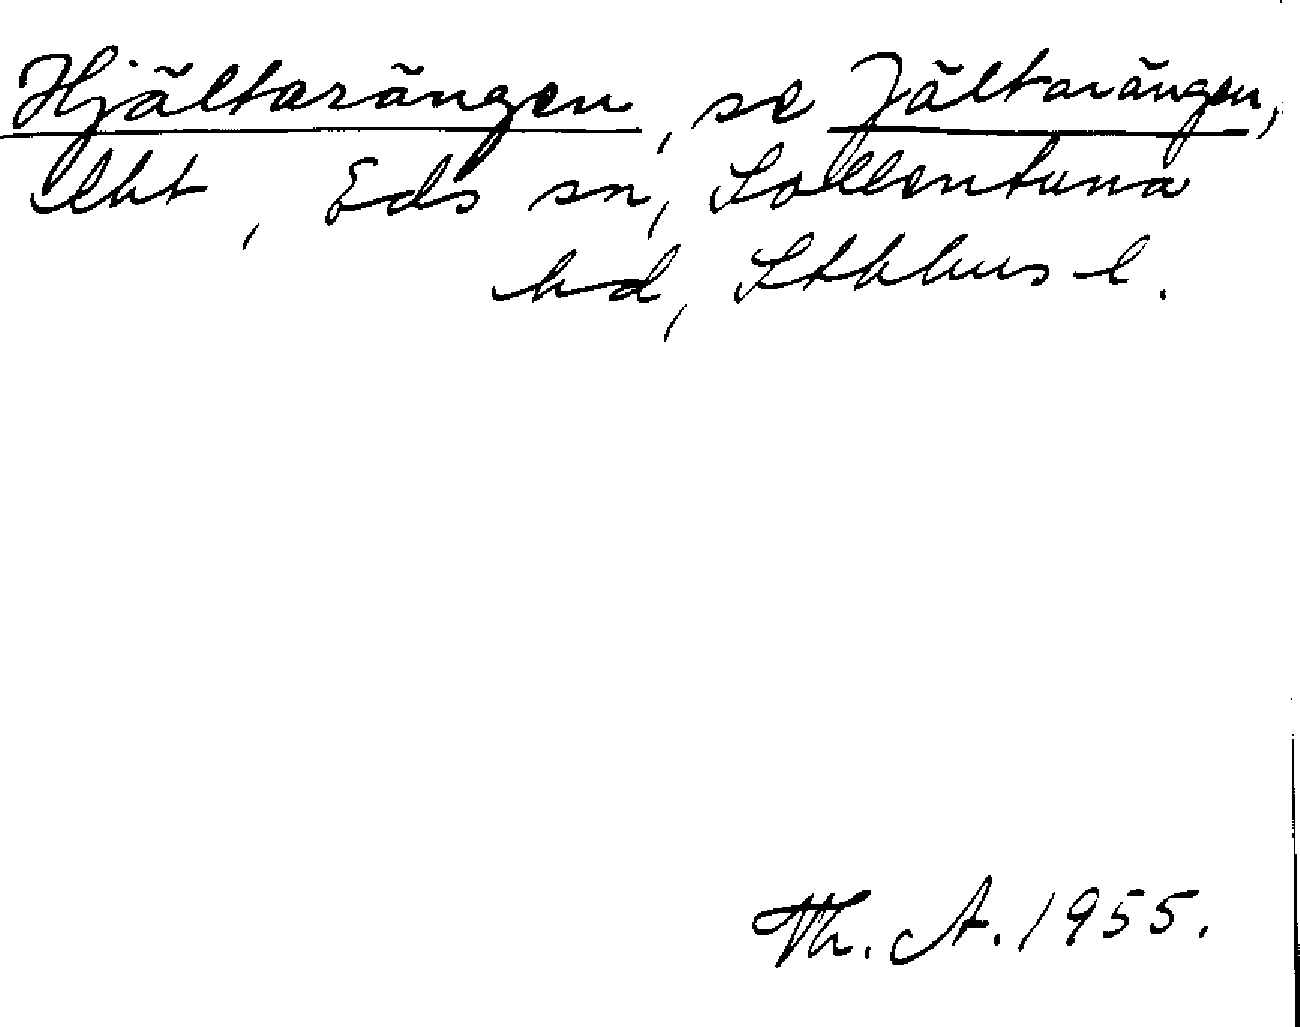 Hjältarängen, se Jältarängen,
lht, Eds sn, Sollentuna
hd, Sthlms l.
Th. A. 1955.